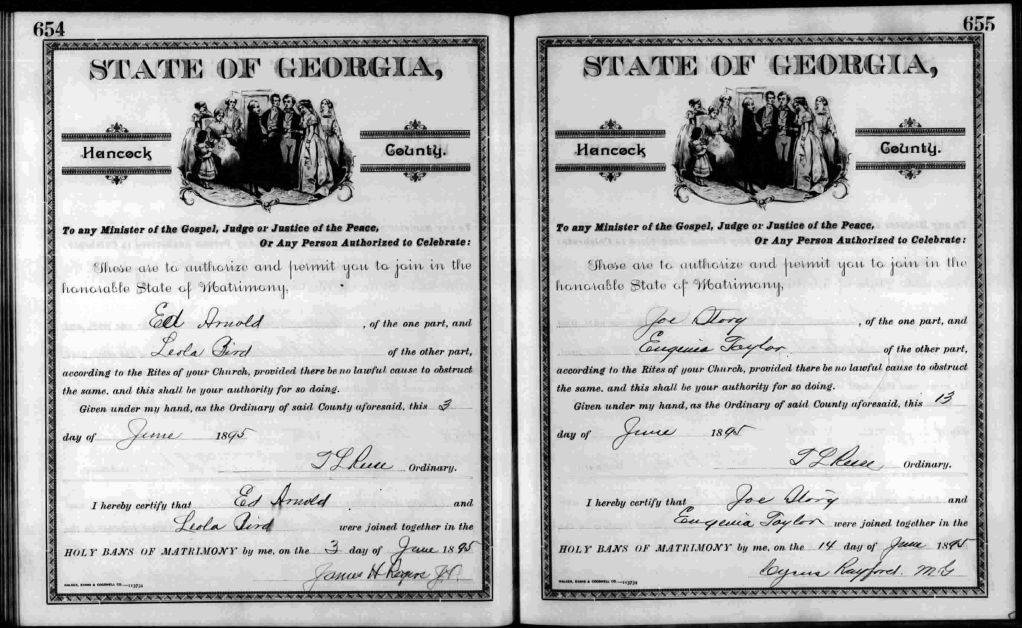 654
STATE OF GEORGIA,
Hancock County.
To any Minister of the Gospel, Judge or Justice of the Peace,
Or Any Person Authorized to Celebrate:
These are to authorize and permit you to join in the
honorable State of Matrimony,
Ed Arnold , of the one part, and
Leola Bird of the other part,
according to the Rites of your Church, provided there be no lawful cause to obstruct
the same, and this shall be your authority for so doing.
Given under my hand, as the Ordinary of said County aforesaid, this 3
day of June 1895
T L Reese Ordinary.
I hereby certify that Ed Arnold and
Leola Bird were joined together in the
HOLY BANS OF MATRIMONY by me, on the 3 day of June 1895
James H Rogers J.P.
655
STATE OF GEORGIA,
Hancock County.
To any Minister of the Gospel, Judge or Justice of the Peace,
Or Any Person Authorized to Celebrate:
These are to authorize and permit you to join in the
honorable State of Matrimony,
Joe Story , of the one part, and
Eugenia Taylor of the other part,
according to the Rites of your Church, provided there be no lawful cause to obstruct
the same, and this shall be your authority for so doing.
Given under my hand, as the Ordinary of said County aforesaid, this 13
day of June 1895
T L Reese Ordinary.
I hereby certify that Joe Story and
Eugenia Taylor were joined together in the
HOLY BANS OF MATRIMONY by me, on the 14 day of June 1895
Cyrus Rayford. M.G